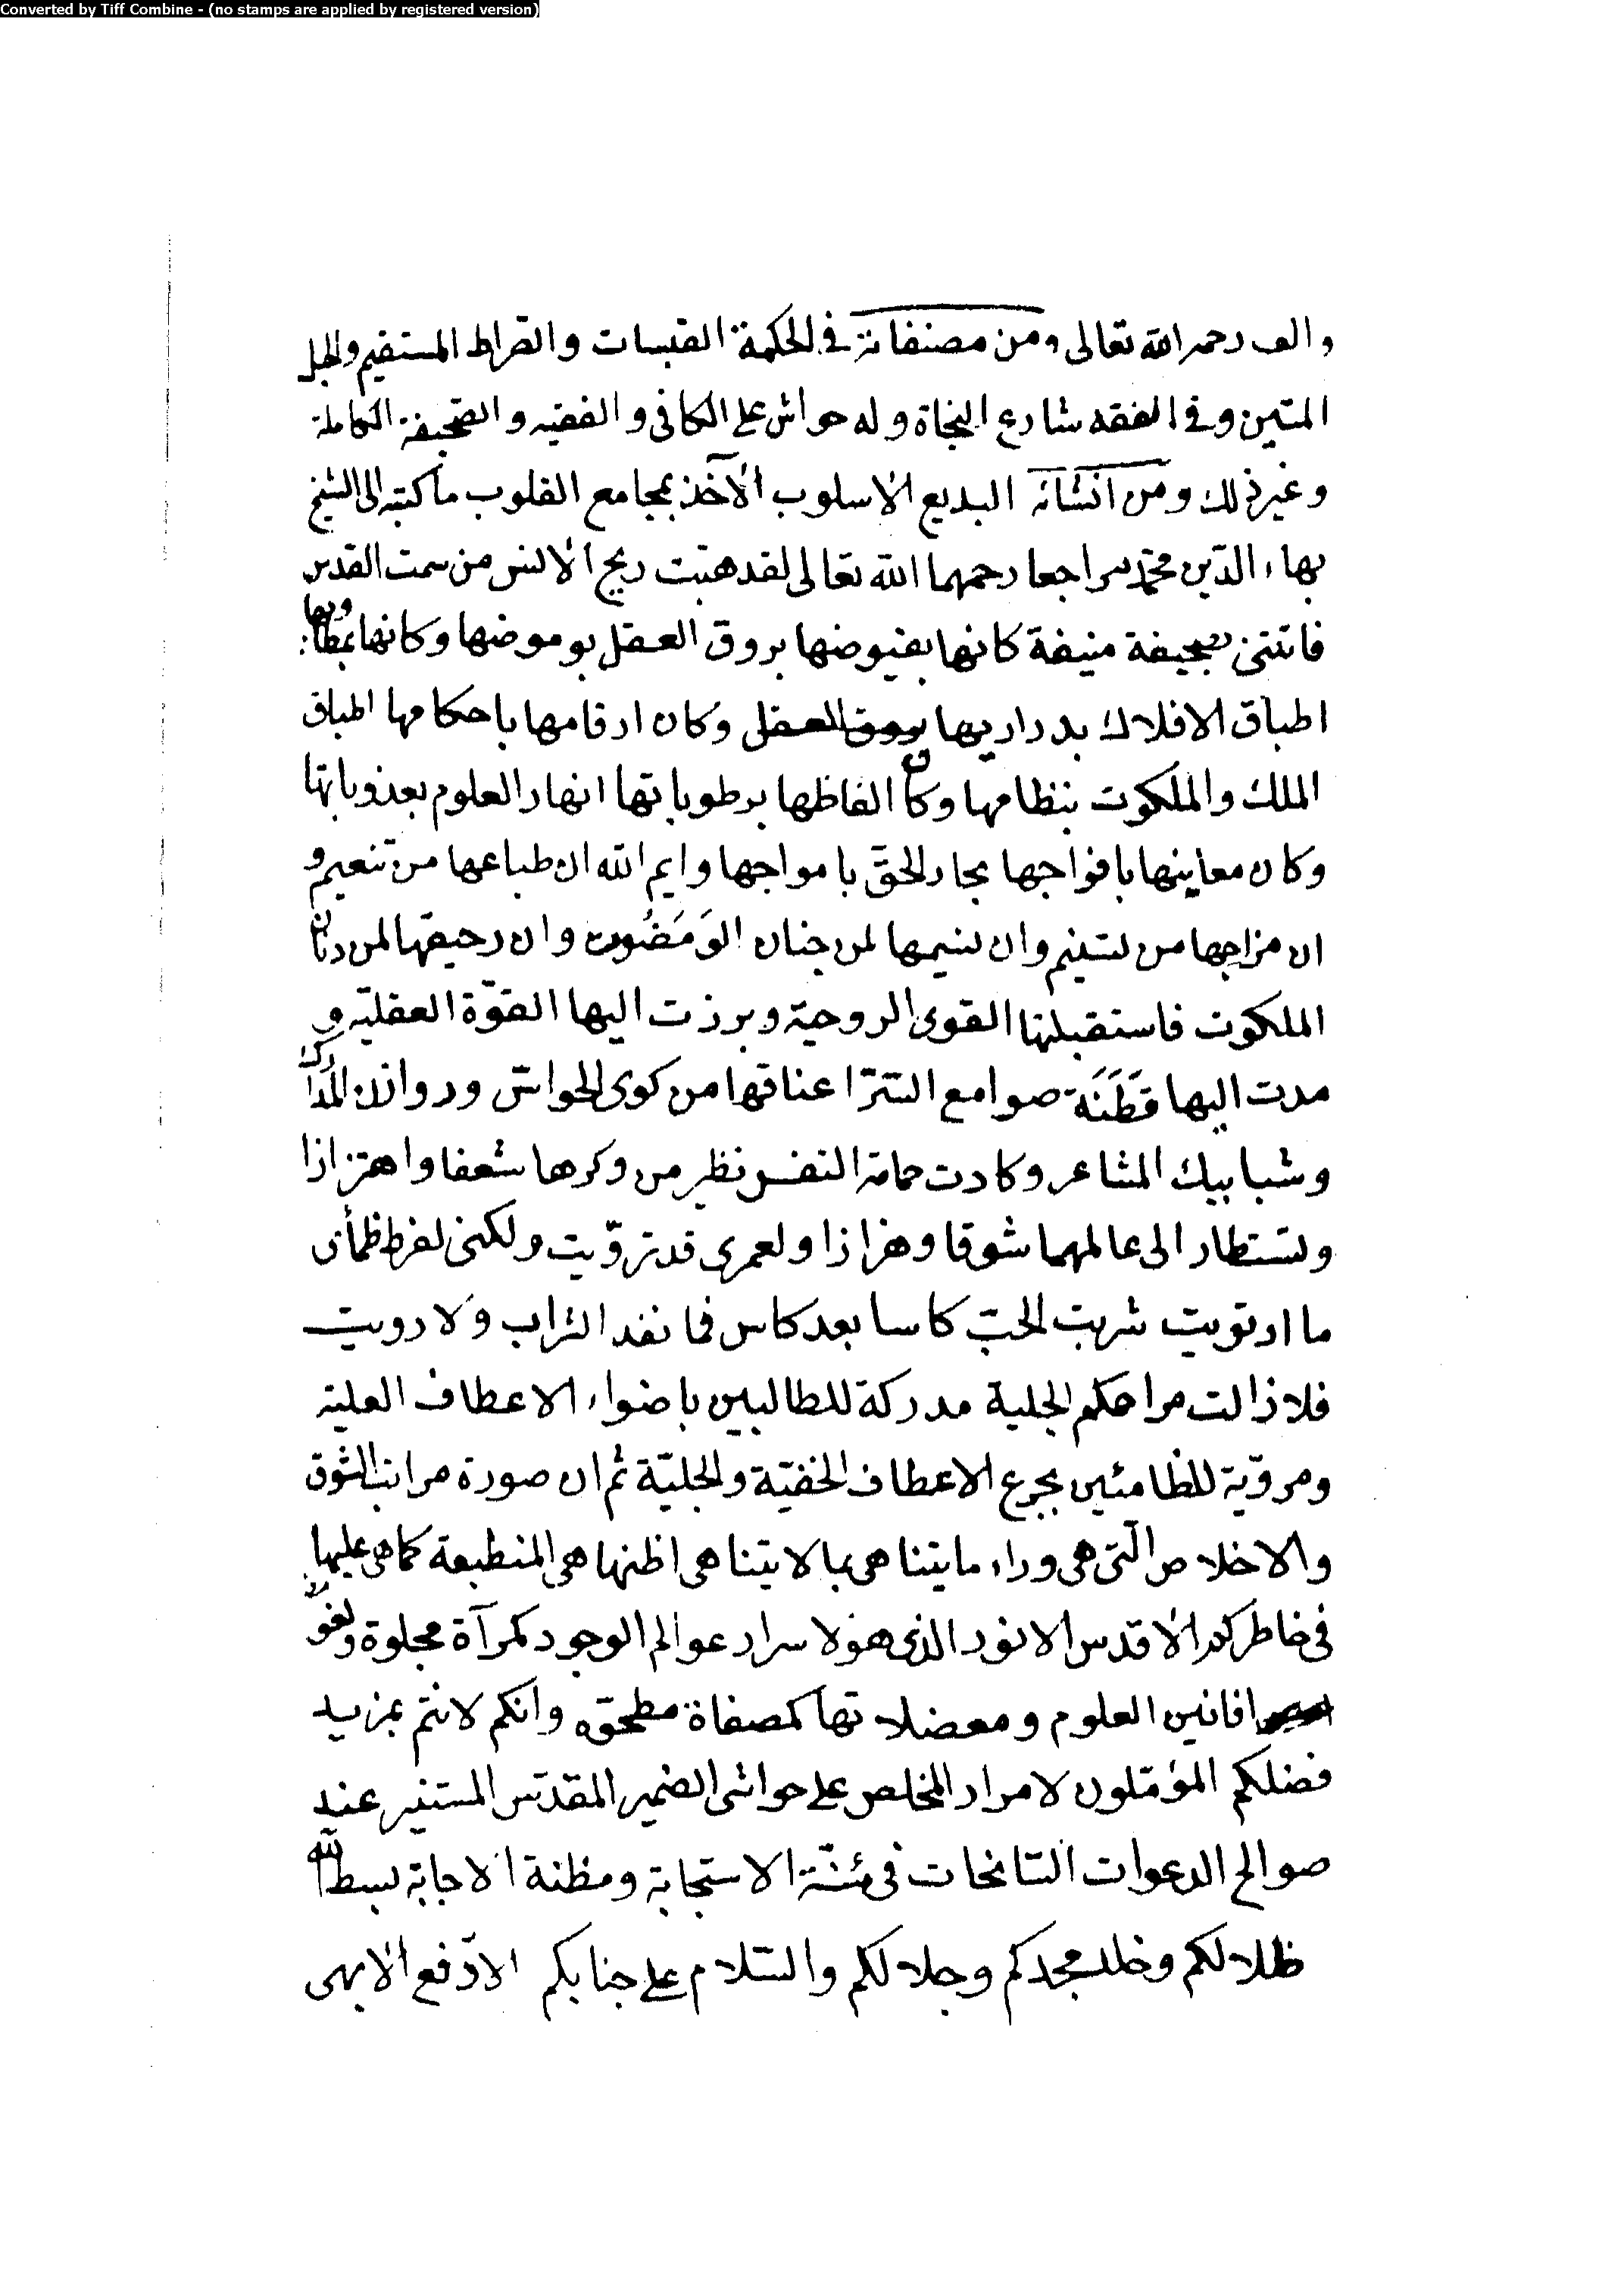 Converted by Tiff Combine - (no stamps are applied by registered version)
والف رحمه الله تعالى ومن مصنفاته فى الحكمة القبسات والصّراط المستقيم والحبل
المتين وفى الفقه شارع النجاة وله حواش على الكافى والفقيه والصّحيفة الكاملة
وغير ذلك ومن انشائه البديع الاسلوب الآخذ بمجامع القلوب ما كتبه الى الشيخ
بهاء الدّين محمّد مراجعا رحمهما الله تعالى لقد هبّت ريح الانس من سمت القدس
فاتتنى بصحيفة منيفة كانها بفيوضها بروق العقل بوموضها وكانها بمطاويها
اطباق الافلاك بدراريها وكان ارقامها باحكامها اطباق
الملك والملكوت بنظامها وكان الفاظها برطوباتها انهار العلوم بعذوباتها
وكان معانيها بافواجها بحار الحقّ بامواجها وايم الله ان طباعها من تنعيم و
ان مزاجها من تسنيم وان نسيمها لمن جنان الوَمَضُوت وان رحيقها لمن دنان
الملكوت فاستقبلتها القوى الروحية وبرزت اليها القوّة العقليّة و
مدت اليها قَطَنَة صوامع السّرّ اعناقها من كوى الحواسّ وروازن المدارك
وشبابيك المشاعر وكادت حمامة النفس تطير من وكرها شعفا واهتزازا
وتستطار الى عالمها شوقا وهزازا ولعمرى قد تروّيت ولكنى لفرط ظمأى
ما ارتويت شربت الحبّ كاسا بعد كاس فما نفد الشراب ولا رويت
فلا زالت مراحمكم الجلية مدركة للطالبين باضواء الاعطاف العلية
ومروّية للظامئين بجرع الاعطاف الخفيّة والجليّة ثم ان صورة مراتب الشوق
والاخلاص الّتى هى وراء ما يتناهى بما لا يتناهى اظنها هى المنطبعة كما هى عليها
فى خاطركم الاقدس الانور الذى هو لاسرار عوالم الوجود كمرآة مجلوة ولغوامض
افانين العلوم ومعضلاتها كمصفاة مطحوّه وانكم لانتم بمزيد
فضلكم المؤمّلون لامرار المخلص على حواشى الضمير المقدّس المستنير عند
صوالح الدعوات السّانحات فى مئنّة الاستجابة ومظنة الاجابة بسط الله
ظلالكم وخلد مجدكم وجلالكم والسّلام على جنابكم الارفع الابهى